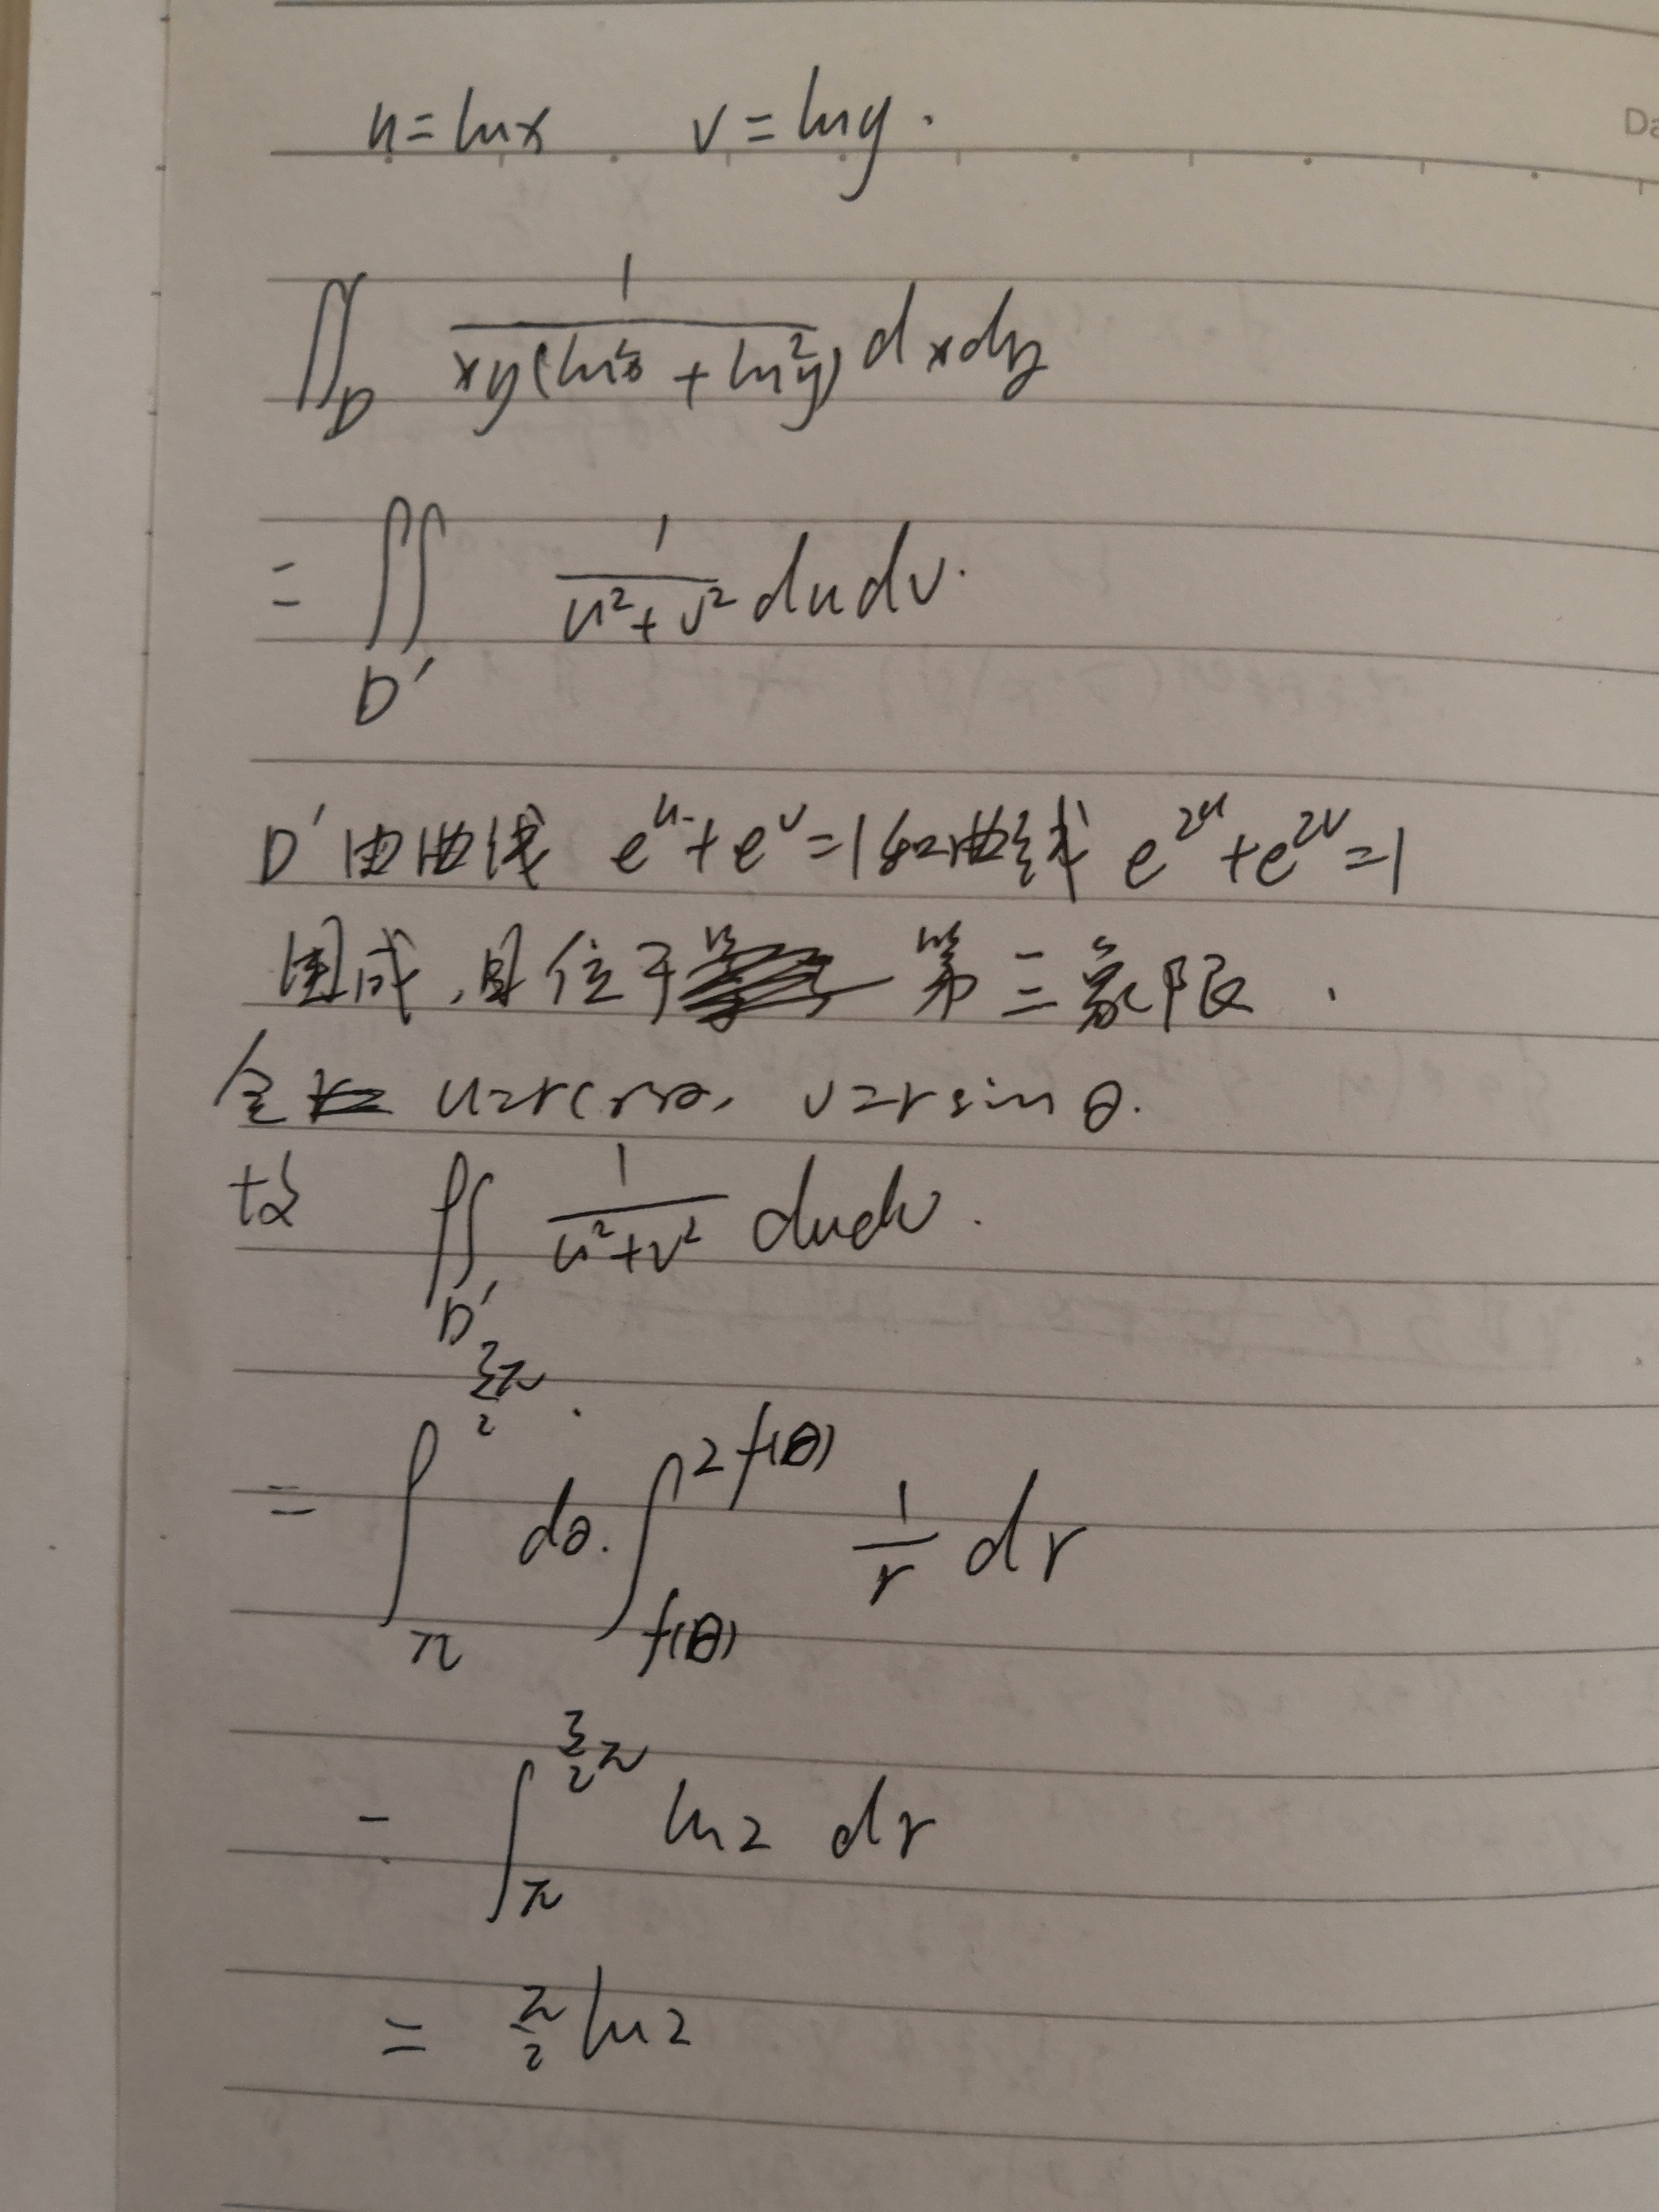 u=lnx v=lny.
Da
∬_D 1/(xy(ln²x+ln²y)) dxdy
=∬_D′ 1/(u²+v²) dudv.
D′由曲线 e^u+e^v=1和曲线 e^{2u}+e^{2v}=1
围成,且位于第三象限.
令 u=rcosθ, v=rsinθ.
故 ∬_D′ 1/(u²+v²) dudv.
=∫_π^{3/2 π} dθ.∫_{f(θ)}^{2f(θ)} 1/r dr
-∫_π^{3/2 π} ln2 dr
=π/2 ln2